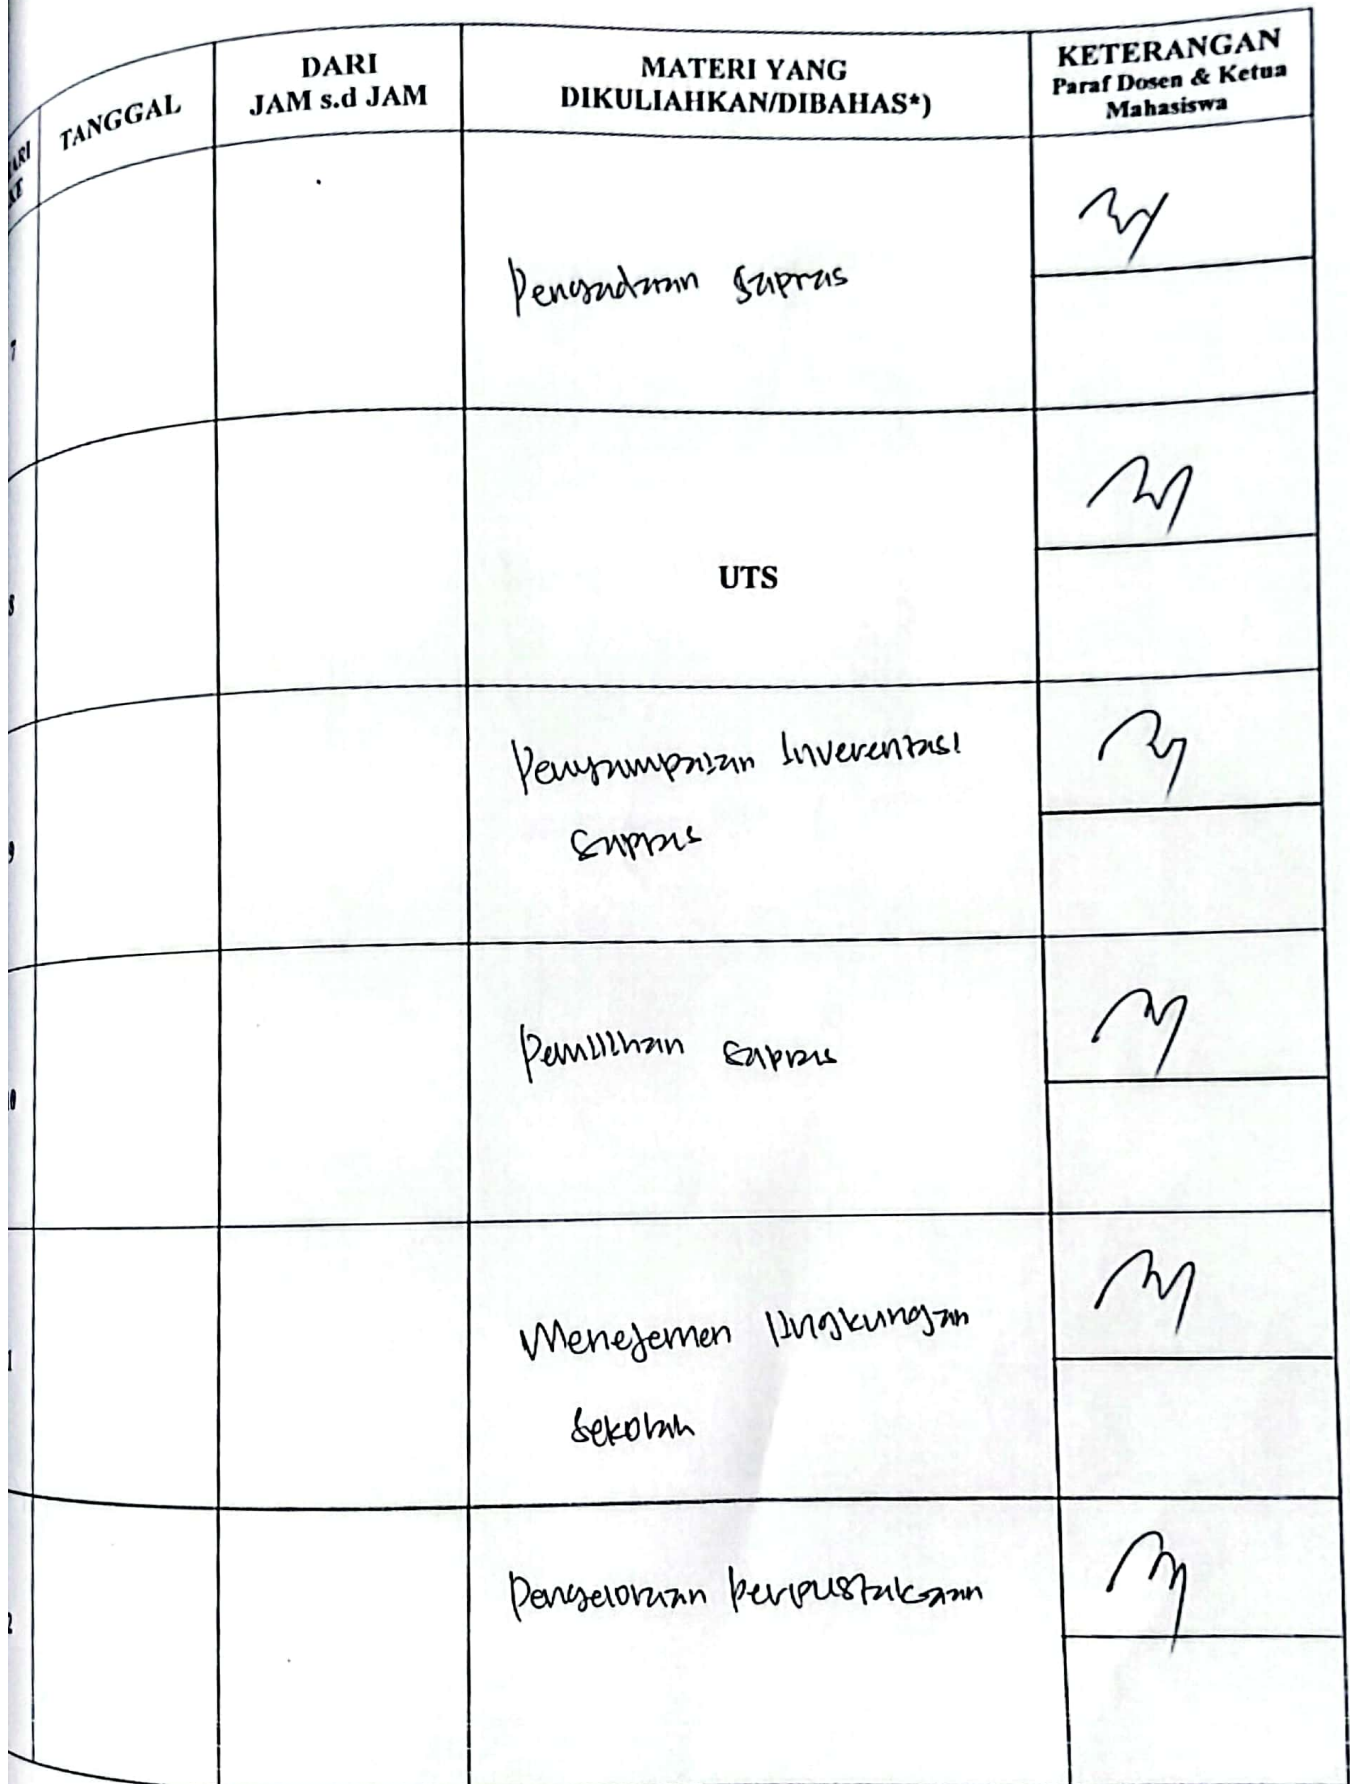 TANGGAL
DARI
JAM s.d JAM
MATERI YANG
DIKULIAHKAN/DIBAHAS*)
KETERANGAN
Paraf Dosen & Ketua
Mahasiswa
7
Pengadaan Sapras
8
UTS
9
Penyampaian Inverentasi
Sapras
Pemilihan Sapras
Menejemen lingkungan
Sekolah
2
Pengelolaan perpustakaan